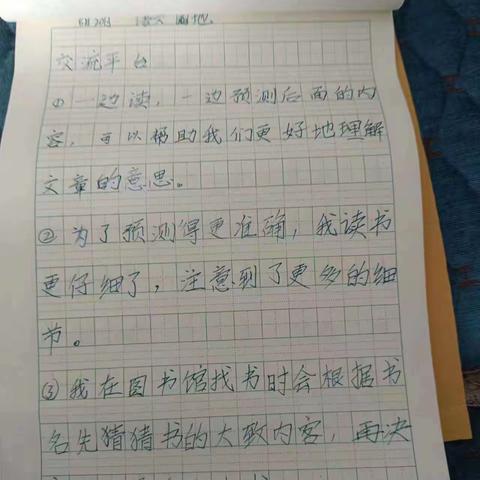 语文园地。
交流平台
①一边读，一边预测后面的内
容，可以帮助我们更好地理解
文章的意思。
②为了预测得更准确，我读书
更仔细了，注意到了更多的细
节。
③我在图书馆找书时会根据书
名先猜猜书的大致内容，再决